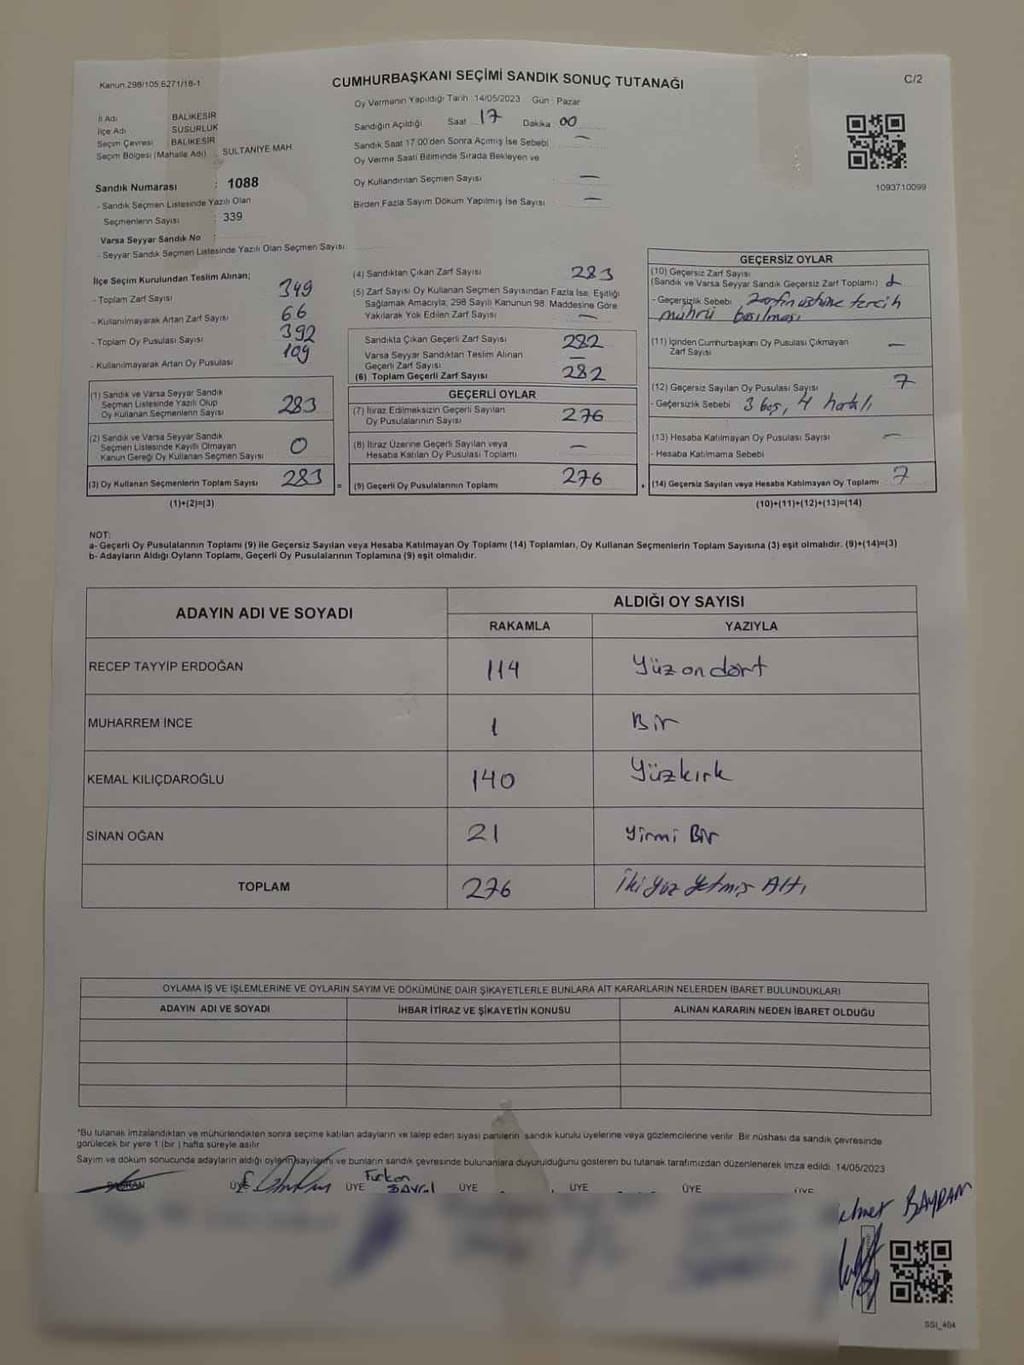 Kanun.298/105,6271/18-1
CUMHURBAŞKANI SEÇİMİ SANDIK SONUÇ TUTANAĞI
C/2
Oy Vermenin Yapıldığı Tarih 14/05/2023 Gün : Pazar
İl Adı BALIKESİR
İlçe Adı SUSURLUK
Seçim Çevresi BALIKESİR
Seçim Bölgesi (Mahalle Adı) : SULTANİYE MAH.
Sandığın Açıldığı Saat : 17 Dakika 00
Sandık Saat 17:00'den Sonra Açımış İse Sebebi —
Oy Verme Saati Bitiminde Sırada Bekleyen ve
Oy Kullandırılan Seçmen Sayısı —
Birden Fazla Sayım Döküm Yapılmış İse Sayısı —
1093710099
Sandık Numarası : 1088
- Sandık Seçmen Listesinde Yazılı Olan
Seçmenlerin Sayısı : 339
Varsa Seyyar Sandık No :
- Seyyar Sandık Seçmen Listesinde Yazılı Olan Seçmen Sayısı:
İlçe Seçim Kurulundan Teslim Alınan;
- Toplam Zarf Sayısı 349
- Kullanılmayarak Artan Zarf Sayısı : 66
- Toplam Oy Pusulası Sayısı : 392
- Kullanılmayarak Artan Oy Pusulası : 109
(1) Sandık ve Varsa Seyyar Sandık
Seçmen Listesinde Yazılı Olup
Oy Kullanan Seçmenlerin Sayısı : 283
(2) Sandık ve Varsa Seyyar Sandık
Seçmen Listesinde Kayıtlı Olmayan
Kanun Gereği Oy Kullanan Seçmen Sayısı : 0
(3) Oy Kullanan Seçmenlerin Toplam Sayısı : 283
(1)+(2)=(3)
(4) Sandıktan Çıkan Zarf Sayısı 283
(5) Zarf Sayısı Oy Kullanan Seçmen Sayısından Fazla İse, Eşitliği
Sağlamak Amacıyla, 298 Sayılı Kanunun 98. Maddesine Göre
Yakılarak Yok Edilen Zarf Sayısı : —
Sandıkta Çıkan Geçerli Zarf Sayısı : 282
Varsa Seyyar Sandıktan Teslim Alınan
Geçerli Zarf Sayısı : —
(6) Toplam Geçerli Zarf Sayısı : 282
GEÇERLİ OYLAR
(7) İtiraz Edilmeksizin Geçerli Sayılan
Oy Pusulalarının Sayısı : 276
(8) İtiraz Üzerine Geçerli Sayılan veya
Hesaba Katılan Oy Pusulası Toplamı : —
= (9) Geçerli Oy Pusulalarının Toplamı : 276
GEÇERSİZ OYLAR
(10) Geçersiz Zarf Sayısı
(Sandık ve Varsa Seyyar Sandık Geçersiz Zarf Toplamı) :
- Geçersizlik Sebebi : Zarfın üstüne tercih
mührü basılması
(11) İçinden Cumhurbaşkanı Oy Pusulası Çıkmayan
Zarf Sayısı : —
(12) Geçersiz Sayılan Oy Pusulası Sayısı : 7
- Geçersizlik Sebebi : 3 boş, 4 hatalı
(13) Hesaba Katılmayan Oy Pusulası Sayısı : —
- Hesaba Katılmama Sebebi
+ (14) Geçersiz Sayılan veya Hesaba Katılmayan Oy Toplamı : 7
(10)+(11)+(12)+(13)=(14)
NOT:
a- Geçerli Oy Pusulalarının Toplamı (9) ile Geçersiz Sayılan veya Hesaba Katılmayan Oy Toplamı (14) Toplamları, Oy Kullanan Seçmenlerin Toplam Sayısına (3) eşit olmalıdır. (9)+(14)=(3)
b- Adayların Aldığı Oyların Toplamı, Geçerli Oy Pusulalarının Toplamına (9) eşit olmalıdır.
ADAYIN ADI VE SOYADI ALDIĞI OY SAYISI
RAKAMLA YAZIYLA
RECEP TAYYİP ERDOĞAN 114 Yüzondört
MUHARREM İNCE 1 Bir
KEMAL KILIÇDAROĞLU 140 Yüzkırk
SİNAN OĞAN 21 Yirmi Bir
TOPLAM 276 İki yüz Yetmiş Altı
OYLAMA İŞ VE İŞLEMLERİNE VE OYLARIN SAYIM VE DÖKÜMÜNE DAİR ŞİKAYETLERLE BUNLARA AİT KARARLARIN NELERDEN İBARET BULUNDUKLARI
ADAYIN ADI VE SOYADI İHBAR İTİRAZ VE ŞİKAYETİN KONUSU ALINAN KARARIN NEDEN İBARET OLDUĞU
*Bu tutanak imzalandıktan ve mühürlendikten sonra seçime katılan adayların ve talep eden siyasi partilerin sandık kurulu üyelerine veya gözlemcilerine verilir. Bir nüshası da sandık çevresinde
görülecek bir yere 1 (bir ) hafta süreyle asılır.
Sayım ve döküm sonucunda adayların aldığı oyların sayılarını ve bunların sandık çevresinde bulunanlara duyurulduğunu gösteren bu tutanak tarafımızdan düzenlenerek imza edildi. 14/05/2023
BAŞKAN ÜYE ÜYE Furkan ÜYE ÜYE ÜYE ÜYE
BAYRAM
SSI_464